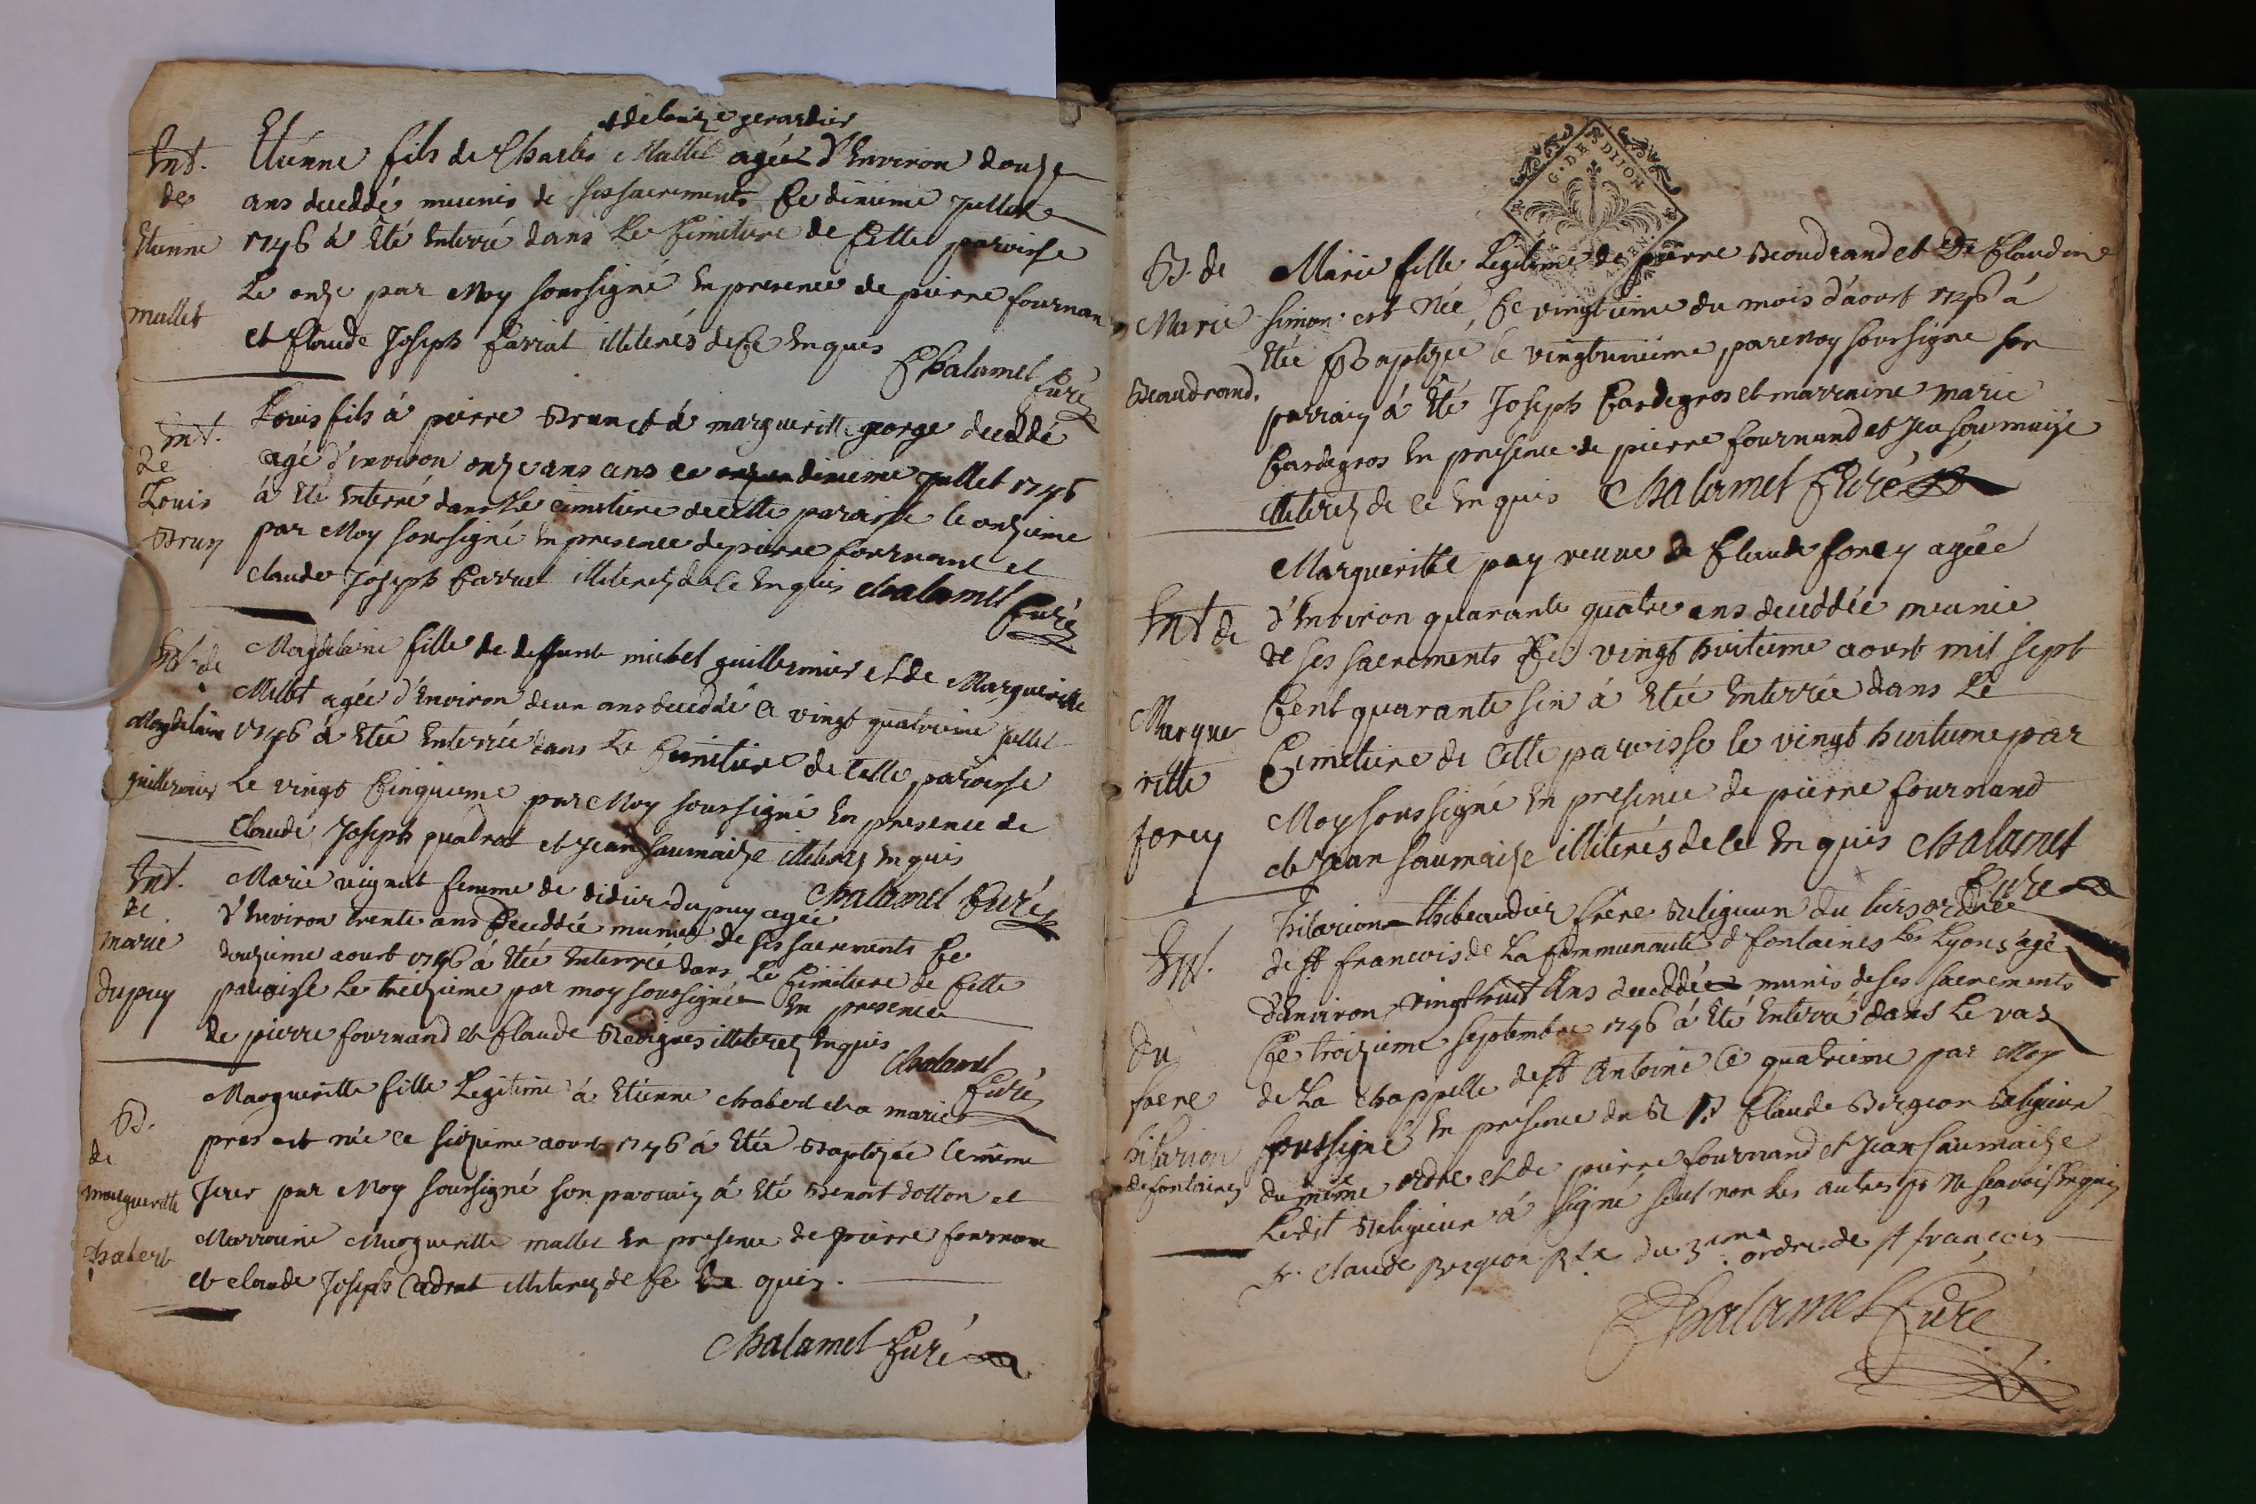 et de louize gerardier
Int. Etienne fils de Charles Mallet agée d'Environ douze
de ans decedé munis de ses sacrements Ce dixieme Jullet
Etienne 1746 à Eté Enterré dans Le Cimetiere de Cette paroisse
mallet Le onze par Moy soussigné En presence de pierre fournan
et Claude Joseph illiterés de Ce Enquis
Chalamel Curé
Louis fils à pierre Brun et à margueritte george decedé
Int. agé d'environ onze ans ans ce dixieme Jullet 1746
de à Eté Enterré dans Le cimetiere de cette paroisse le onzieme
Louis par Moy soussigné En presence de pierre fournand et
Brun claude Joseph illiterez de Ce Enquis Chalamel Curé
Int. de Magdelaine fille de deffunt michel guillermier et de Margueritte
Millet agée d'Environ deux ans decedée Ce vingt quatrieme Jullet
Magdelaine 1746 à Etée Enterrée dans Le Cimitiere de Cette paroisse
guillermier Le vingt Cinquieme par Moy soussigné En presence de
Claude Joseph quadrat et Jean saumaize illiterez Enquis
Chalamel Curé
Int. Marie vignat femme de didier dupuy agée
de d'Environ trente ans decedée munie de ses sacrements Ce
marie douzieme aoust 1746 à Etée Enterrée dans Le Cimitiere de Cette
dupuy paroisse Le treizieme par moy soussigné En presence
de pierre fournand et Claude illiterez Enquis
Chalamel Curé
B. Margueritte fille Legitime à Etienne chabert et a marie
de prés est née ce seizieme aoust 1746 à Etée Baptizée le meme
margueritte Jour par Moy soussigné son parrain à Eté Benoit dotton et
chabert Marraine Margueritte mallet En presence de pierre fournan
et claude Joseph Cadrat illiterez de Ce En quis.
Chalamel Curé
G. DE DIJON
B. de Marie fille Legitime de pierre Beaudrand et De Claudine
Marie simon est Née Ce vingtieme du mois d'aoust 1746 à
Beaudrand. Etée Baptizée le vingtunieme par moy soussigné son
parrain à Eté Joseph Cardegros et marraine marie
Cardegros En presence de pierre fournand et Jean saumaize
illiterez de Ce Enquis Chalamel Curé
Margueritte pay veuve de Claude forey agée
Int de d'Environ quarante quatre ans decedée munie
de ses sacrements Ce vingt huitieme aoust mil sept
Margue Cent quarante six à Etée Enterrée dans Le
ritte Cimetiere de Cette paroisse le vingt huitieme par
forey Moy soussigné En presence de pierre fournand
et Jean saumaize illiterés de Ce Enquis Chalamel
Curé
hilarion thibeaudier frère Religieux du tiers ordre
Int. de st francois de La Communauté de fontaines Les Lyons agé
d'Environ vingt huit Ans decedé munis de ses sacrements
du Ce troizieme septembre 1746 à Eté Enterré dans Le vaz
frere de La Chappelle de st Antoine le quatrieme par Moy
hilarion soussigné En presence du R P Claude Bergeon Religieux
de fontaines du même ordre et de pierre fournand et Jean saumaize
Ledit Religieux à signé seul non les autres Ne scavoir Enquis
fr. Claude Bergeon du 3eme ordre de st francois
Chalamel Curé